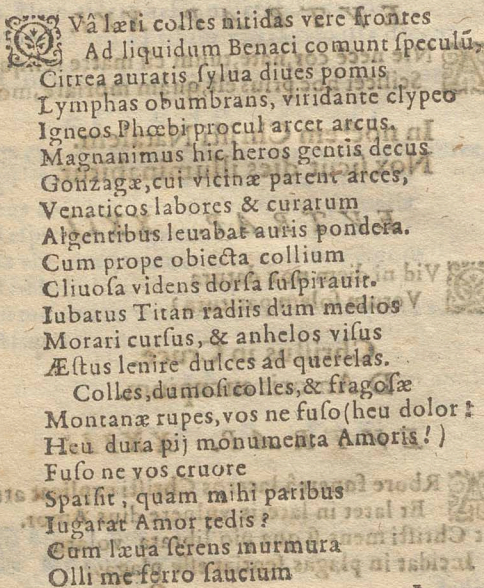 QVâ læti colles nitidas vere frontes
Ad liquidum Benaci comunt ſpeculū,
Citrea auratis ſylua diues pomis
Lymphas obumbrans, viridante clypeo
Igneos Phœbi procul arcet arcus.
Magnanimus hic heros gentis decus
Gonzagæ, cui vicinæ parent arces,
Venaticos labores & curarum
Algentibus leuabat auris pondera.
Cum prope obiecta collium
Cliuoſa videns dorſa ſuſpirauit.
Iubatus Titan radiis dum medios
Morari curſus, & anhelos viſus
Æſtus lenire dulces ad querelas.
Colles, dumoſi colles, & fragoſæ
Montanæ rupes, vos ne fuſo (heu dolor!
Heu dura pij monumenta Amoris!)
Fuſo ne vos cruore
Sparſit, quam mihi paribus
Iugarat Amor tedis?
Cum læua ferens murmura
Olli me ferro ſaucium